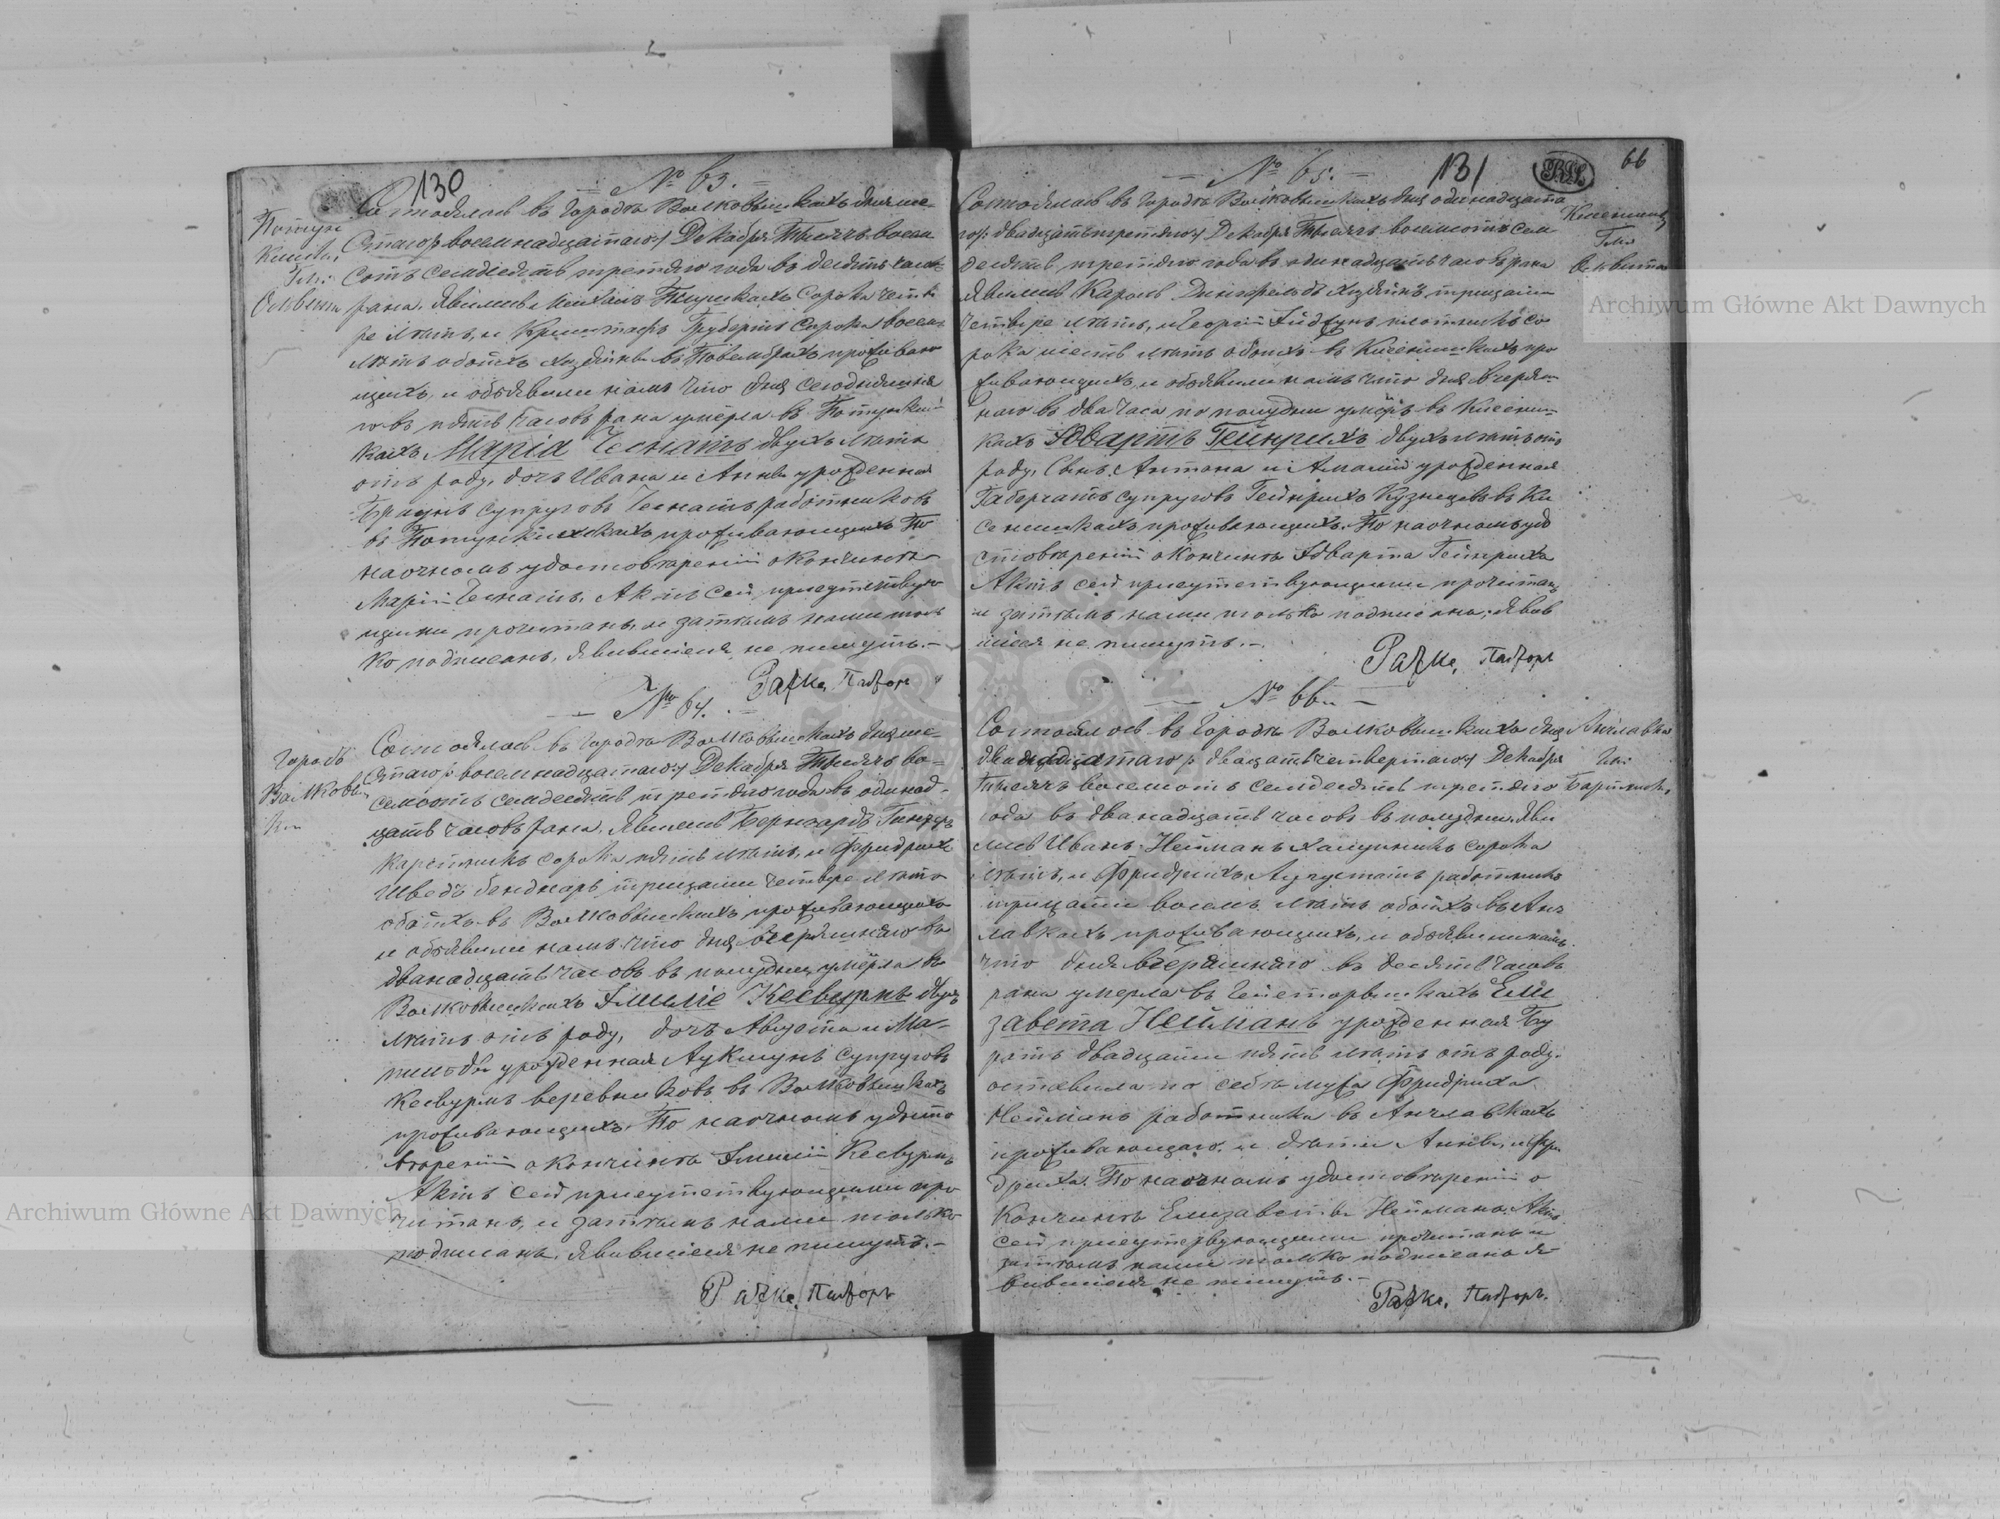 130
№ 63.
Состоялось въ Городѣ Волковышкахъ дня ше-
стаго/: восемнадцатаго:/ Декабря Тысяча восемь
сотъ семдесятъ третяго года въ десять часовъ
рана. Явились Михаилъ Сорока четы
ре лѣтъ, и Криштафъ Грубертъ Сорока восемь
лѣтъ обоихъ хозяины въ проживаю
щихъ, и объявили намъ что дня сегодняшня
го въ пять часовъ рана умёрла въ
кахъ Марія Чеснатъ двухъ лѣтъ
отъ роду, дочь Ивана и Анны урожденная
Браунъ супруговъ Чеснатъ работниковъ
въ проживающихъ По
наочномъ удостовѣреніи о кончинѣ
Маріи Чеснатъ, Актъ сей присутствую
щими прочитанъ, и затѣмъ нами толь
ко подписанъ, явившіеся не пишутъ.-
Пасторъ
№ 64.
Городъ
Волковыш
ки
Состоялось въ Городѣ Волковышкахъ дня ше-
стаго/: восемнадцатаго:/ Декабря Тысяча во-
семсотъ семдесятъ третяго года въ одинад-
цать часовъ рана, Явились Бернгардъ
каретникъ сорока пять лѣтъ, и Фридрихъ
Шведъ бенднаръ тридцати четыре лѣтъ
обоихъ въ Волковышкахъ проживающихъ
и объявили намъ что дня вчерашняго въ
дванадцать часовъ въ полудни умёрла въ
Волковышкахъ Эмиліе Кесвурмъ двухъ
лѣтъ отъ роду, дочь Августа и Ма-
тильды урожденная супруговъ
Кесвурмъ веревниковъ въ Волковышкахъ
проживающихъ. По наочномъ удосто
вѣреніи о кончинѣ Эмиліи Кесвурмъ
Актъ сей присутствующими про
читанъ, и затѣмъ нами только
подписанъ, явившіеся не пишутъ.-
Пасторъ
131
66
№ 65.
Состоялось въ Городѣ Волковышкахъ дня одинадцата
го/: двадцать третяго:/ Декабря Тысяча восемсотъ сем
десятъ третяго года въ одинадцать часовъ рана
Явились Кароль хозяинъ тридцати
четыре лѣтъ, и Георгій плотникъ со
рока шесть лѣтъ обоихъ въ Кисенишкахъ про
живающихъ, и объявили намъ что дня вчераш
няго въ два часа по полудни умёръ въ Кисениш-
кахъ Эдвартъ Гейнрихъ двухъ лѣтъ отъ
роду, Сынъ Антона и Амаліи урожденная
супруговъ Гейнрихъ Кузнецовъ въ Ки
сенишкахъ проживающихъ. По наочномъ удо
стовѣреніи о кончинѣ Эдварта Гейнриха
Актъ сей присутствующими прочитанъ
и затѣмъ нами только подписанъ, Явив
шіеся не пишутъ.-
Пасторъ
№ 66.
Состоялось въ Городѣ Волковышкахъ дня
двѣнадцатаго/: двадцать четвертаго:/ Декабря
Тысяча восемсотъ семдесятъ третяго
года въ дванадцать часовъ въ полудни, Яви
лись Иванъ Нейманъ сорока
лѣтъ, и Фридрихъ работникъ
тридцати восемь лѣтъ обоихъ въ Анч
лавкахъ проживающихъ, и объявили намъ
что дня вчерашняго въ десять часовъ
рана умерла въ Ели
завета Нейманъ урожденная Бу
ратъ двадцати пять лѣтъ отъ роду,
оставила по себѣ мужа Фридриха
Нейманъ работника въ Анчлавкахъ
проживающаго, и дѣти Анны, и Фри
дриха. По наочномъ удостовѣреніи о
кончинѣ Елизаветы Нейманъ, Актъ
сей присутствующими прочитанъ и
затѣмъ нами только подписанъ, я-
вившіеся не пишутъ.-
Пасторъ.
Archiwum Główne Akt Dawnych
Archiwum Główne Akt Dawnych